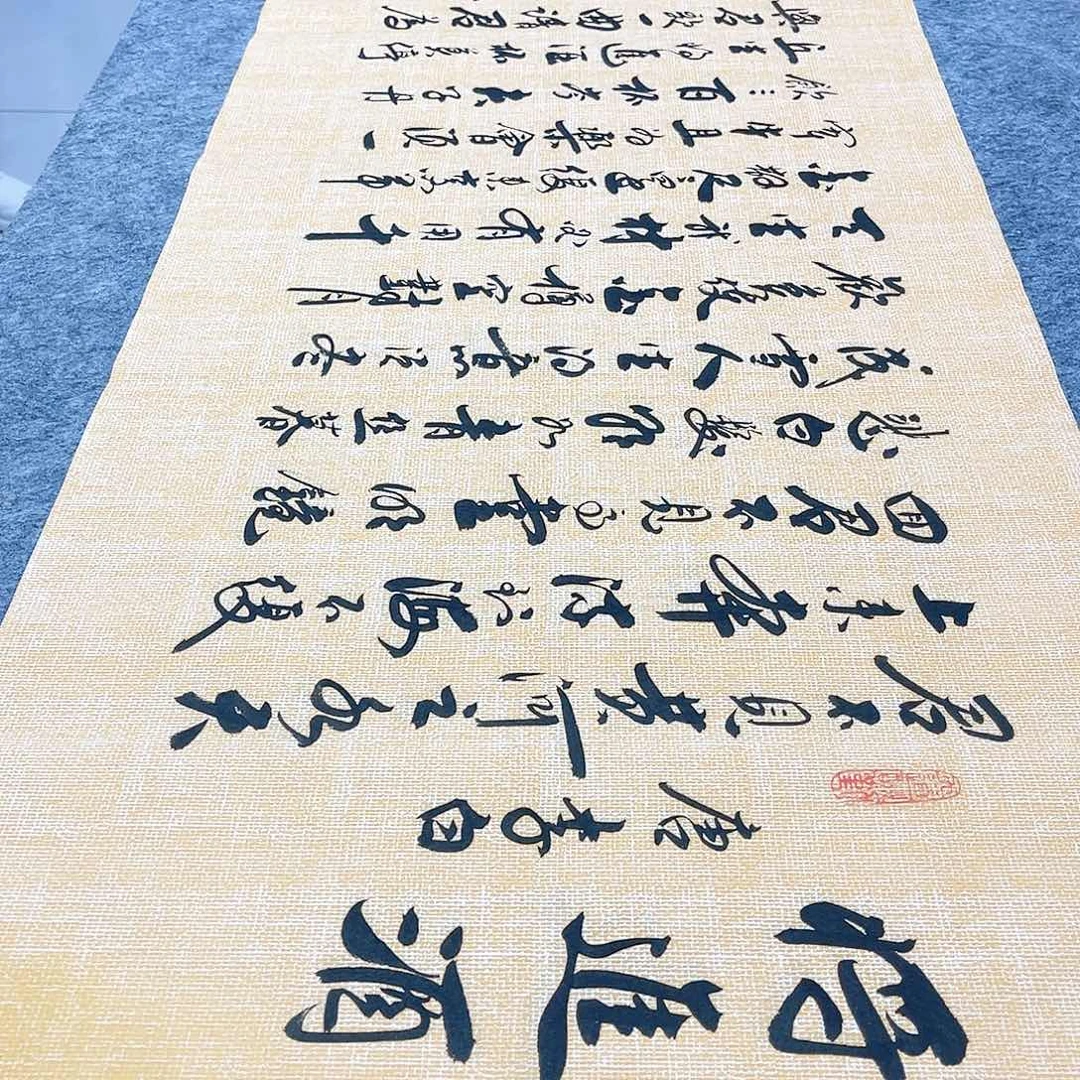 將進酒
唐李白
君不見黃河之水天
上来奔流到海不復
回君不見高堂明鏡
悲白髮朝如青絲暮
成雪人生得意須盡
歡莫使金樽空對月
天生我材必有用千
金散尽還復来烹羊
宰牛且為樂會須一
飲三百杯岑夫子丹
丘生將進酒杯莫停
與君歌一曲請君為